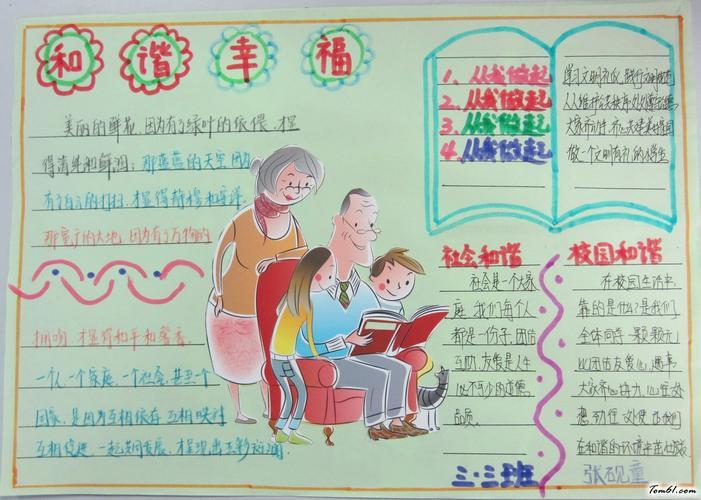 和谐幸福
美丽的鲜花,因为有了绿叶的依偎,才显
得清纯和鲜润;那蓝蓝的天空,因为
有了白云的打扮,才显得静穆和
那宽广的大地,因为有了万物的
拥吻,才显得和平和馨香。
一个人,一个家庭,一个社会,甚至一个
国家,是因为互相依存,互相映衬
互相促进,一起共同发展,才呈现出五彩斑斓
1、从我做起
2、从我做起
3、从我做起
4、从我做起
学习文明礼仪,践行文明规范
从维护公共秩序
大家
做一个文明有礼的小学生
社会和谐
社会是一个大家
庭,我们每个人
都是一份子,团结
互助,友爱是人生
必不可少的道德
品质。
校园和谐
在校园生活中,
靠的是什么?是我们
全体同学一颗颗
团结友爱心,遇事
大家齐心协力,心往一处
想,劲往一处使,让我们
在和谐的环境中茁壮成长
三·三班
张砚童
Tom61.com